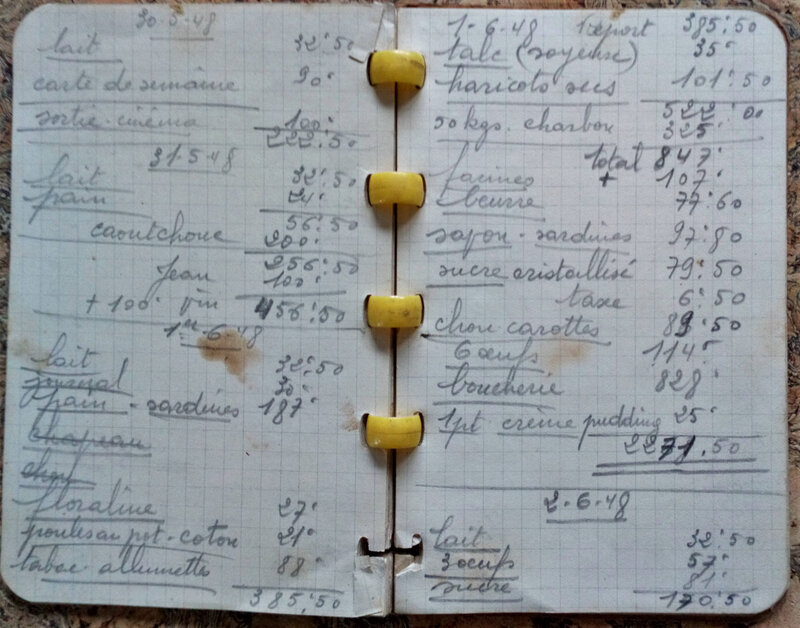 30-5-48
lait 32.50
carte de semaine 90.
sortie cinéma 100.
222.50
31-5-48
lait 32.50
pain 24.
56.50
caoutchouc 200.
256.50
Jean 100.
+ 100. vin 456.50
1er-6-48
lait 32.50
journal 30.
pain - sardines 187.
chapeau
chou
floraline 27.
poule au pot - coton 21.
tabac - allumettes 88.
385.50
1-6-48 Report 385.50
talc (soyeuse) 35.
haricots secs 101.50
522.00
50 kgs. charbon 325.
total 847.
farines + 107.
beurre 77.60
savon - sardines 97.80
sucre cristallisé 79.50
taxe 6.50
chou carottes 89.50
6 œufs 114.
boucherie 828.
1pt crème pudding 25.
2271.50
2-6-48
lait 32.50
3 œufs 57.
sucre 81.
170.50